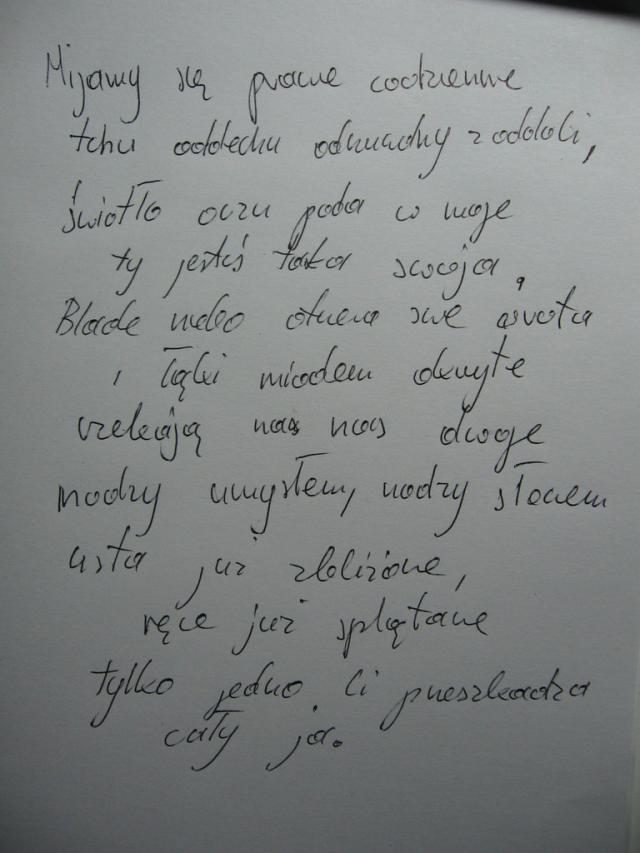 Mijamy się prawie codziennie
tchu oddechu odważny z oddali,
światło oczu pada w moje
ty jesteś taka swoja,
Blade niebo otwiera swe wrota
i łąki miodem okryte
czekają nas nas dwoje
mądzy umysłem, mądzy słowem
usta już zbliżone,
ręce już splątane
tylko jedno Ci przeszkadza
cały ja.